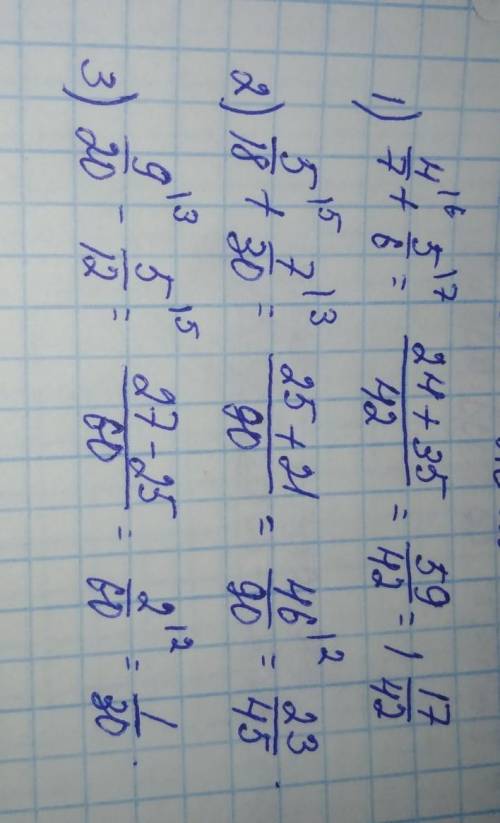 1) 4/7 \6 + 5/6 \7 = (24 + 35)/42 = 59/42 = 1 17/42
2) 5/18 \5 + 7/30 \3 = (25 + 21)/90 = 46/90 \2 = 23/45.
3) 9/20 \3 - 5/12 \5 = (27 - 25)/60 = 2/60 \2 = 1/30.